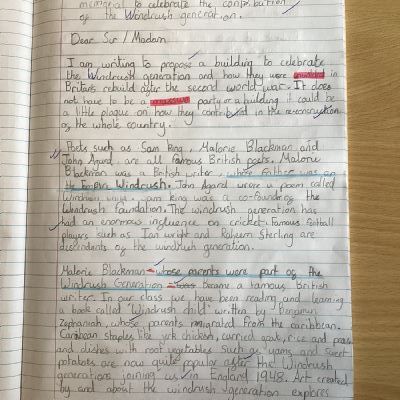 memorial to celebrate the contribution
of the Windrush generation.
Dear Sir / Madam,
I am writing to propose a building to celebrate
the Windrush generation and how they were in
Britain rebuild after the second world war. It does
not have to be a party or a building it could be
a little plaque on how they contributed in the reconstruction
of the whole country.
Poets such as Sam King, Malorie Blackman and
John Agard are all famous British poets. Malorie
Blackman was a British writer, whose father was on
the Empire Windrush. John Agard wrote a poem called
Windrush child. Sam king was a co-founder of the
Windrush foundation. The windrush generation has
had an enormous influence on cricket. Famous football
players such as Ian wright and Raheem Sterling are
descendents of the windrush generation.
Malorie Blackman - whose parents were part of the
Windrush Generation - became a famous British
writer. In our class we have been reading and learning
a book called 'Windrush child' written by Benjamin
Zephaniah, whose parents migrated from the caribbean.
Caribbean staples like jerk chicken, curried goat, rice and peas
and dishes with root vegetables such as yams and sweet
potatoes are now quite popular after the Windrush
generations joining us in England 1948. Art created
by and about the windrush generation explores